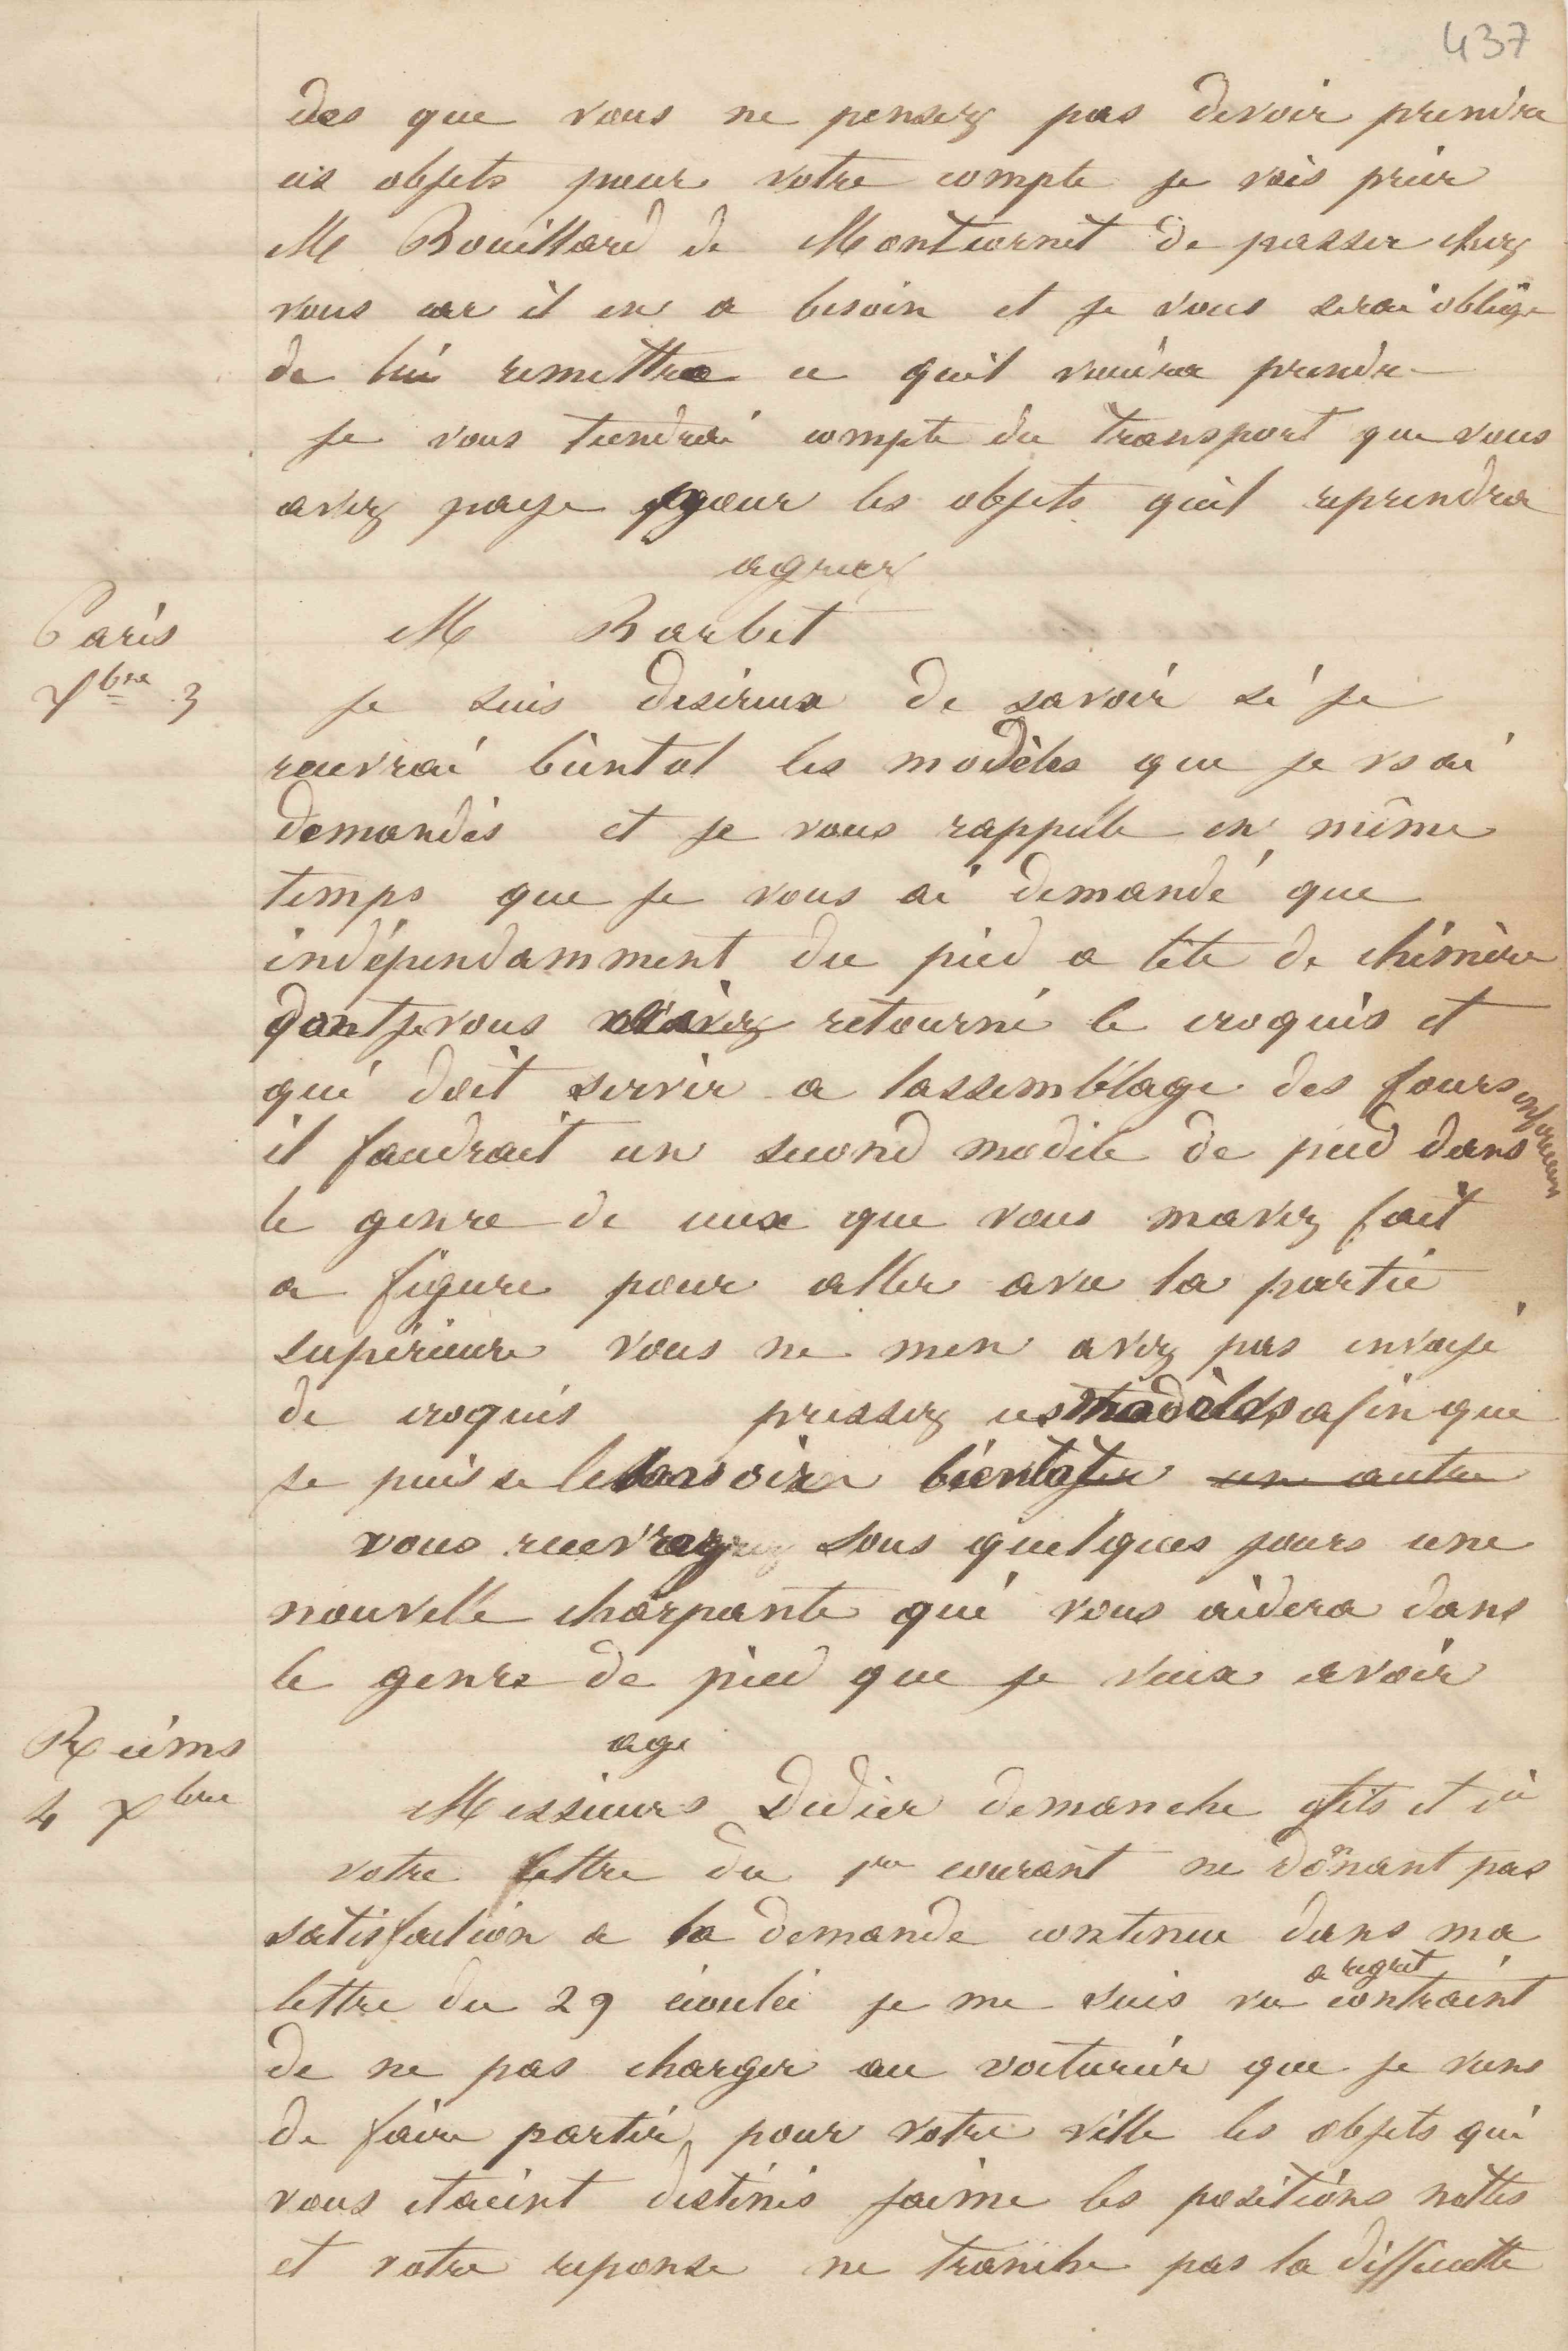 437
des que vous ne pensez pas devoir prendre
ces objets pour votre compte je vais prier
M Rouillard de Montcornet de passer chez
vous car il en a besoin et je vous serai obligé
de lui remettre ce quil voudra prendre
je vous tiendrai compte du transport que vous
avez paye pour les objets quil reprendra
agreez
Paris
Xbre 3
M Barbet
je suis desireux de savoir si je
recevrai bientot les modèles que je vs ai
demandés et je vous rappelle en même
temps que je vous ai demandé que
indépendamment du pied a tête de chimère
dont je vous retourné le croquis et
qui doit servir a lassemblage des fours inferieurs
il faudrait un second modele de pied dans
le genre de ceux que vous mavez fait
a figure pour aller avec la partie
supérieure vous ne men avez pas envoyé
de croquis pressez ces modèles afin que
je puisse les avoir bientot un autre
vous recevrez sous quelques jours une
nouvelle charpente qui vous aidera dans
le genre de pied que je veux avoir
age
Reims
4 Xbre
Messieurs Didier demanche fils et cie
votre lettre du 1er courant ne donnant pas
satisfaction a la demande contenue dans ma
lettre du 29 écoulée je me suis vu a regret contraint
de ne pas charger au voiturier que je viens
de faire partir pour votre ville les objets qui
vous etaient destinés jaime les positions nettes
et votre reponse ne tranche pas la difficulte